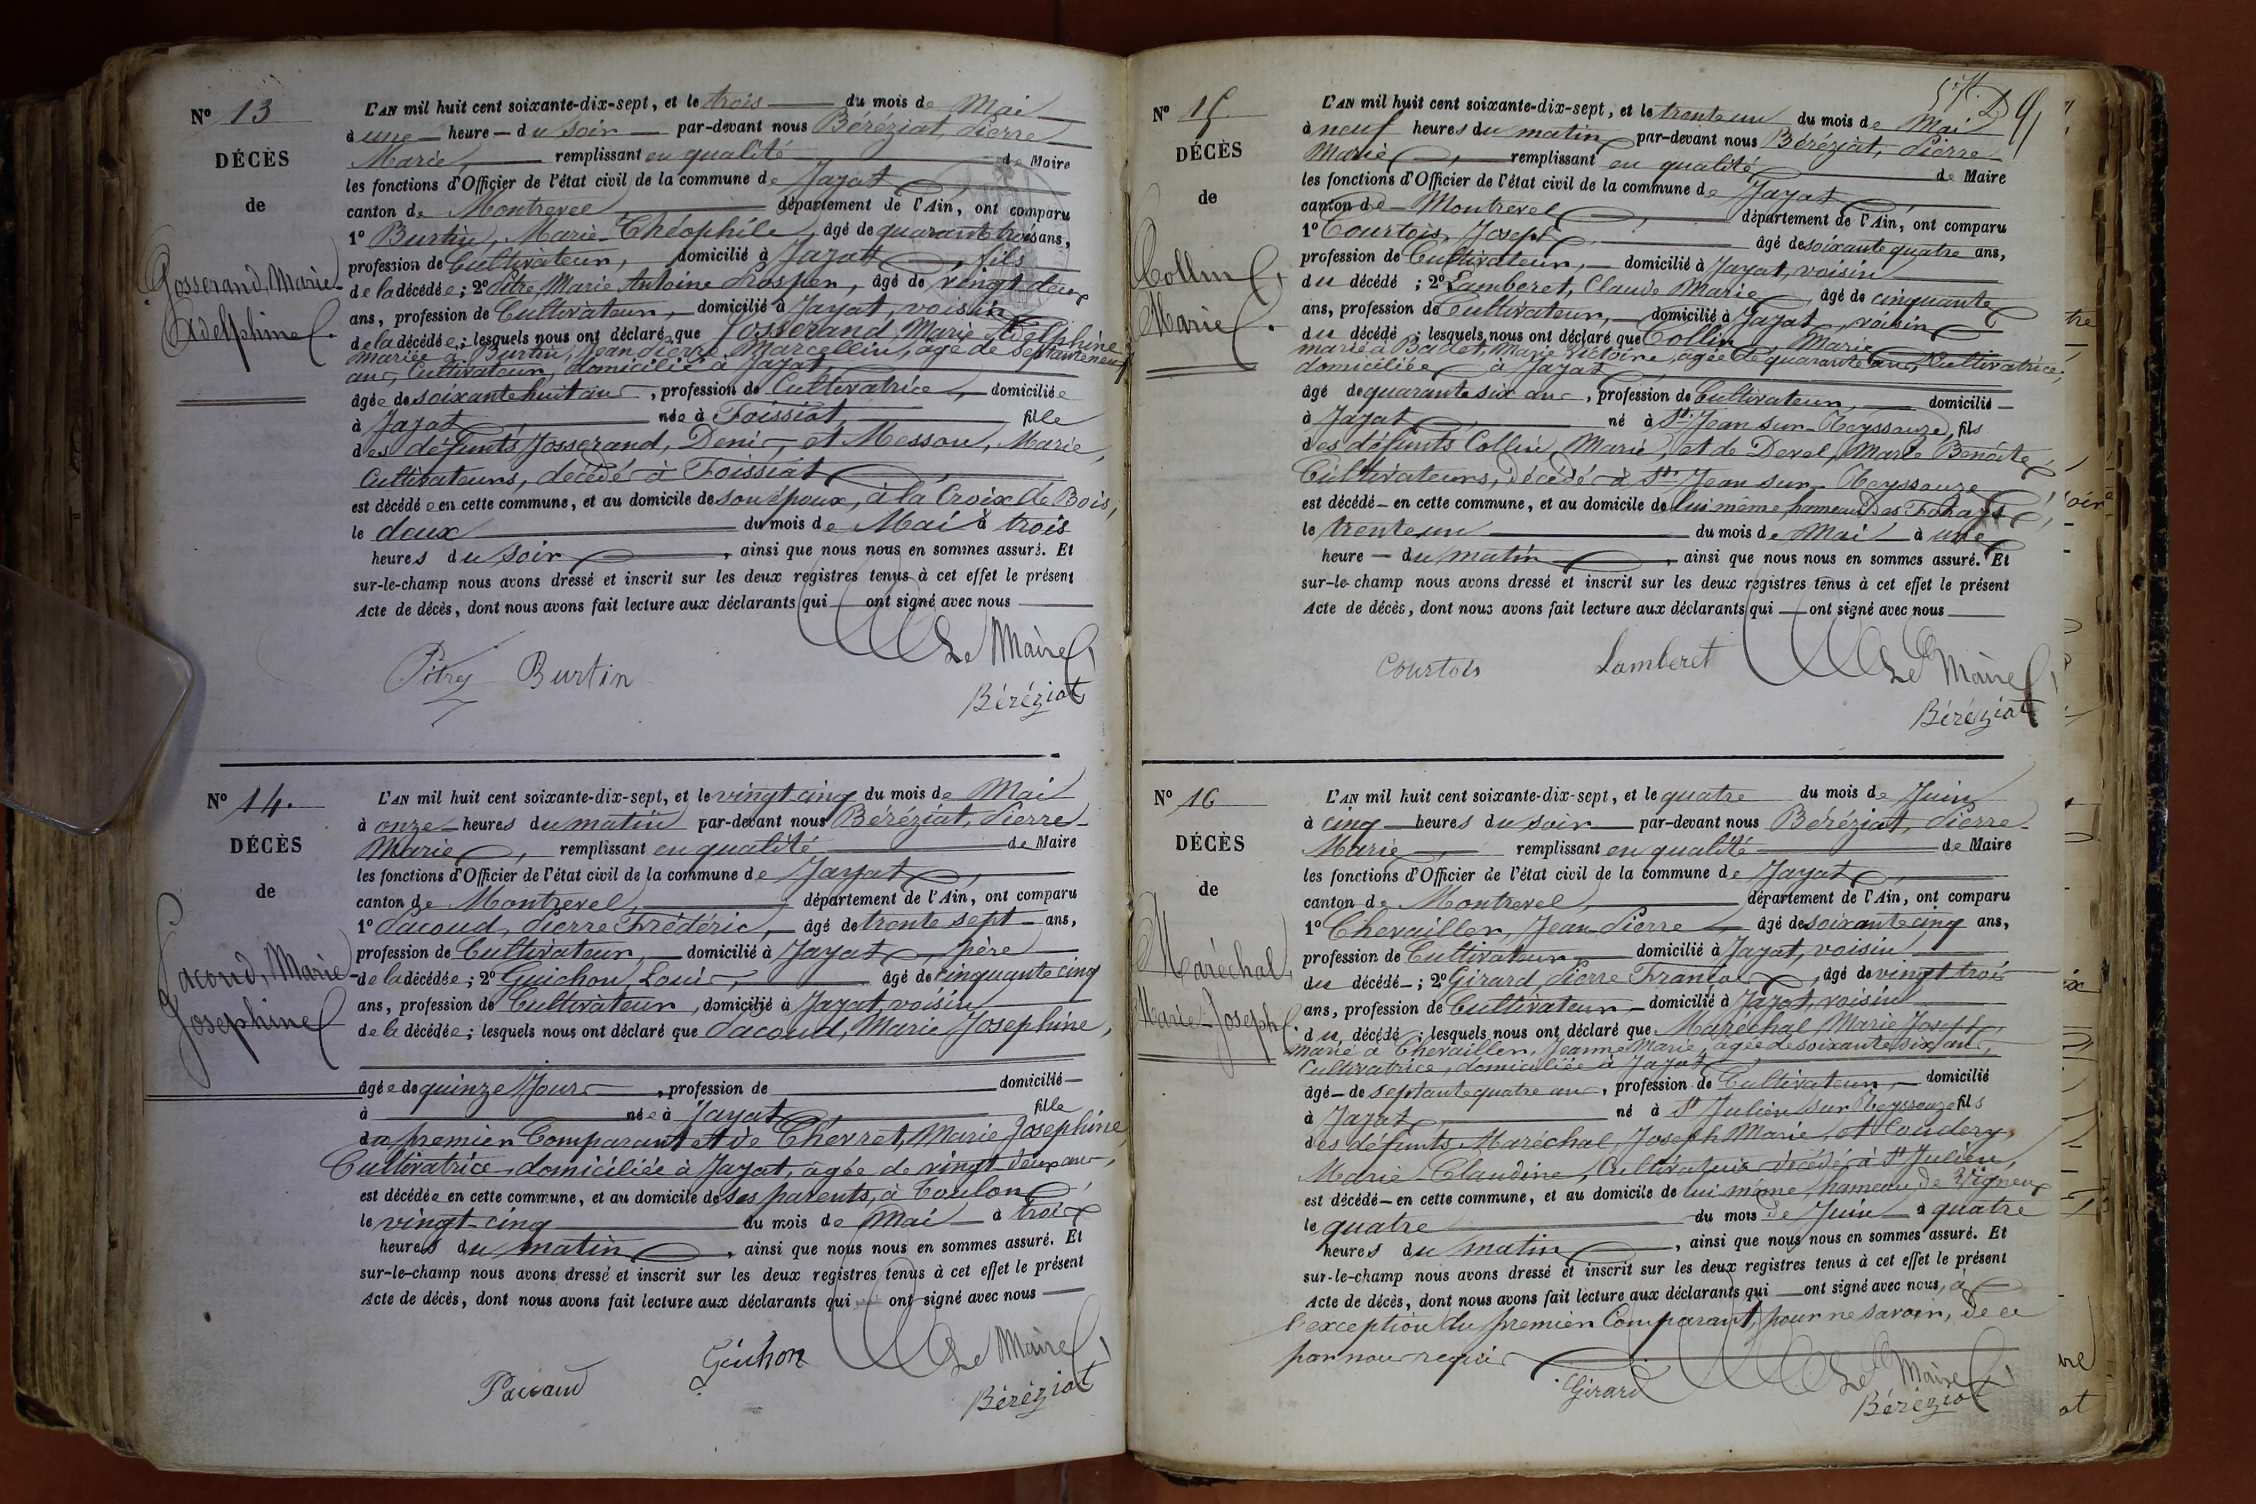 Nº 13
DÉCÈS
de
Josserand, Marie
Adelphine
L'AN mil huit cent soixante-dix-sept, et le trois du mois de Mai
à une heure du soir par-devant nous Béréziat, Pierre
Marie, remplissant en qualité de Maire
les fonctions d'Officier de l'état civil de la commune de Jayat
canton de Montrevel département de l'Ain, ont comparu
1º Burtin, Marie-Théophile, âgé de quarante trois ans,
profession de Cultivateur, domicilié à Jayat, fils
de la décédée; 2º Pitre Marie Antoine Prosper, âgé de vingt deux
ans, profession de Cultivateur, domicilié à Jayat, voisin
de la décédée; lesquels nous ont déclaré que Josserand, Marie Adelphine
mariée à Burtin, Jean Pierre Marcellin, âgé de septante neuf
ans, Cultivateur, domicilié à Jayat
âgée de soixante huit ans, profession de Cultivatrice, domiciliée
à Jayat, née à Foissiat fille
des défunts Josserand, Denis, et Messon, Marie,
Cultivateurs, décédé à Foissiat
est décédée en cette commune, et au domicile de son époux, à la Croix de Bois,
le deux du mois de Mai à trois
heures du soir, ainsi que nous nous en sommes assuré. Et
sur-le-champ nous avons dressé et inscrit sur les deux registres tenus à cet effet le présent
Acte de décès, dont nous avons fait lecture aux déclarants qui ont signé avec nous
Le Maire
Burtin
Béréziat
Nº 14.
DÉCÈS
de
Pacoud, Marie
Josephine
L'AN mil huit cent soixante-dix-sept, et le vingt cinq du mois de Mai
à onze heures du matin par-devant nous Béréziat, Pierre
Marie, remplissant en qualité de Maire
les fonctions d'Officier de l'état civil de la commune de Jayat,
canton de Montrevel, département de l'Ain, ont comparu
1º Pacoud, Pierre Frédéric, âgé de trente sept ans,
profession de Cultivateur, domicilié à Jayat, père
de la décédée; 2º Guichon, Louis, âgé de cinquante cinq
ans, profession de Cultivateur, domicilié à Jayat, voisin
de la décédée; lesquels nous ont déclaré que Pacoud, Marie Josephine,
âgée de quinze Jours, profession de domicilié
à née à Jayat fille
du premier Comparant et de Chevret, Marie Josephine,
Cultivatrice, domiciliée à Jayat, âgée de vingt-deux ans,
est décédée en cette commune, et au domicile de ses parents, à Toulon
le vingt-cinq du mois de Mai à trois
heures du matin, ainsi que nous nous en sommes assuré. Et
sur-le-champ nous avons dressé et inscrit sur les deux registres tenus à cet effet le présent
Acte de décès, dont nous avons fait lecture aux déclarants qui ont signé avec nous
Guichon Le Maire
Pacoud Béréziat
Nº 15.
DÉCÈS
de
Collin,
Marie
L'AN mil huit cent soixante-dix-sept, et le trente un du mois de Mai
à neuf heures du matin par-devant nous Béréziat, Pierre
Marie, remplissant en qualité de Maire
les fonctions d'Officier de l'état civil de la commune de Jayat
canton de Montrevel, département de l'Ain, ont comparu
1º Courtois, Joseph âgé de soixante quatre ans,
profession de Cultivateur, domicilié à Jayat, voisin
du décédé; 2º Lamberet, Claude Marie âgé de cinquante
ans, profession de Cultivateur, domicilié à Jayat, voisin
du décédé; lesquels nous ont déclaré que Collin, Marie
marié à Badet, Marie Victoire, âgée de quarante ans, Cultivatrice,
domiciliée à Jayat
âgé de quarante six ans, profession de Cultivateur, domicilié
à Jayat, né à St. Jean sur-Reyssouze, fils
des défunts Collin, Marie, et de Devel, Marie Benoîte
Cultivateurs, décédé à St. Jean sur-Reyssouze
est décédé en cette commune, et au domicile de lui même, hameau des
le trente un du mois de Mai à une
heure du matin, ainsi que nous nous en sommes assuré. Et
sur-le-champ nous avons dressé et inscrit sur les deux registres tenus à cet effet le présent
Acte de décès, dont nous avons fait lecture aux déclarants qui ont signé avec nous
Courtois Lamberet Le Maire
Béréziat
Nº 16
DÉCÈS
de
Maréchal,
Marie-Joseph
L'AN mil huit cent soixante-dix-sept, et le quatre du mois de Juin
à cinq heures du soir par-devant nous Béréziat, Pierre-
Marie, remplissant en qualité de Maire
les fonctions d'Officier de l'état civil de la commune de Jayat,
canton de Montrevel, département de l'Ain, ont comparu
1º Chevailler, Jean-Pierre âgé de soixante cinq ans,
profession de Cultivateur domicilié à Jayat, voisin
du décédé; 2º Girard, Pierre François, âgé de vingt trois
ans, profession de Cultivateur domicilié à Jayat, voisin
du décédé; lesquels nous ont déclaré que Maréchal, Marie Joseph
marié à Chevailler, Jeanne Marie, âgée de soixante six ans,
Cultivatrice, domiciliée à Jayat,
âgé de septante quatre ans, profession de Cultivateur, domicilié
à Jayat, né à St Julien sur Reyssouze fils
des défunts Maréchal, Joseph Marie, et Coudery,
Marie-Claudine, Cultivateurs décédé à St Julien,
est décédé en cette commune, et au domicile de lui même, hameau de Vigneux
le quatre du mois de Juin à quatre
heures du matin, ainsi que nous nous en sommes assuré. Et
sur-le-champ nous avons dressé et inscrit sur les deux registres tenus à cet effet le présent
Acte de décès, dont nous avons fait lecture aux déclarants qui ont signé avec nous, à
l'exception du premier Comparant, pour ne savoir, de ce
par nous requis
Girard Le Maire
Béréziat